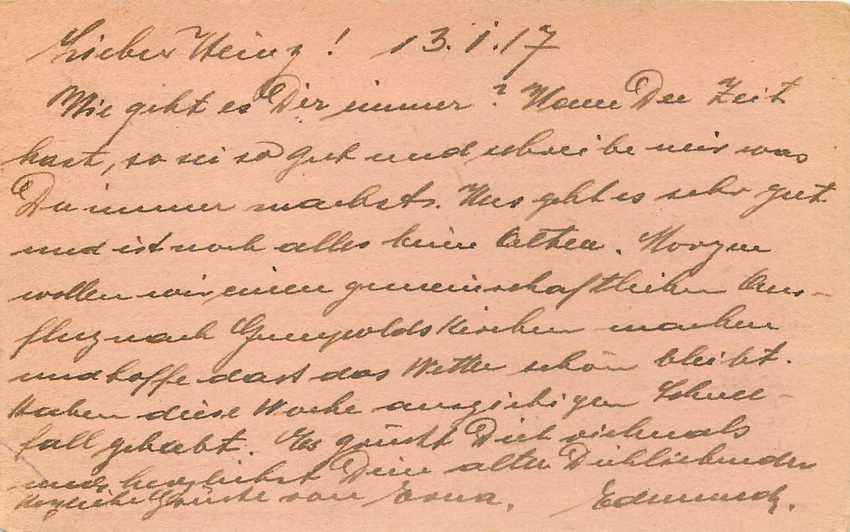 Lieber Heinz! 13.1.17
Wie geht es Dir immer? Wenn Du Zeit
hast, so sei so gut und schreibe mir was
Du immer machst. Uns geht es sehr gut
und ist noch alles beim Alten. Morgen
wollen wir einen gemeinschaftlichen Aus-
flug nach Gumpoldskirchen machen
und hoffe dast das Wetter schön bleibt.
Haben diese Woche ausgiebigen Schnee-
fall gehabt. Es grüsst Dich vielmals
und herzlichst Dein alter Dichliebender
Herzliche Grüsse von Erna. Edmund.